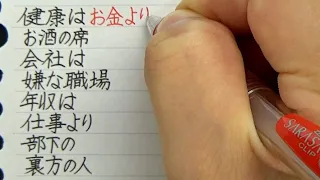 健康はお金より
お酒の席
会社は
嫌な職場
年収は
仕事より
部下の
裏方の人
SARASA
CLIP